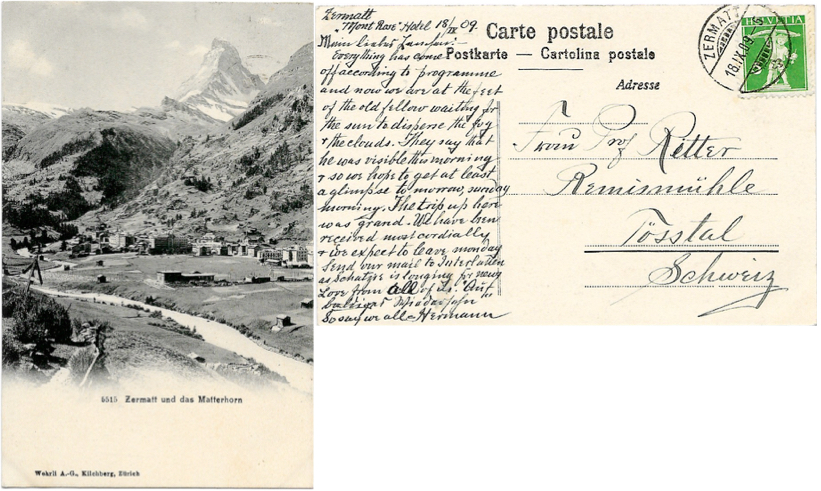 5515 Zermatt und das Matterhorn
Wehrli A.-G., Kilchberg, Zürich
Zermatt
"Mont Rose" Hotel 18/IX 09.
Everything has come
off according to programme
and now we are at the feet
of the old fellow waiting for
the sun to disperse the fog
& the clouds. They say that
he was visible this morning
& so we hope to get at least
a glimpse to morrow, sunday
morning. The trip up here
was grand. We have been
received most cordially
& we expect to leave monday
Send our mail to Interlaken
as Schatzie is longing for
Love from all of us
So say we all - Hermann
Carte postale
Postkarte — Cartolina postale
Adresse
Frau Prof Retter
Remismühle
Tösstal
Schweiz
HELVETIA
ZERMATT
18.IX.09